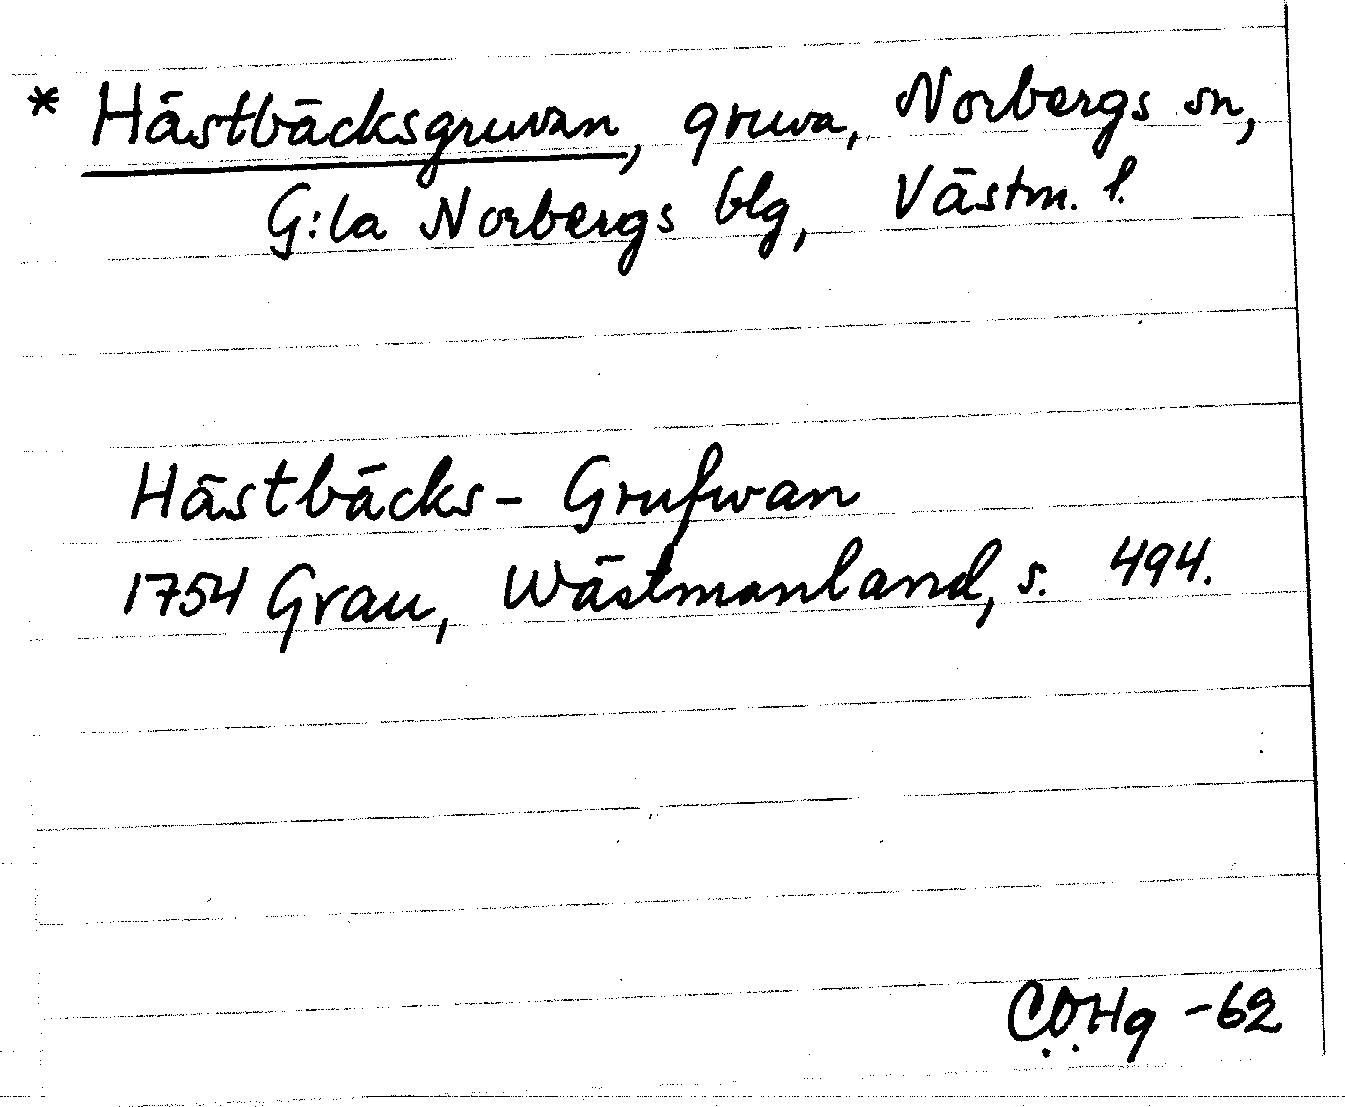 * Hästbäcksgruvan, gruva, Norbergs sn,
G:la Norbergs blg, Västm. l.
Hästbäcks-Grufwan
1754 Grau, Wästmanland, s. 494.
C.O.Hg -62